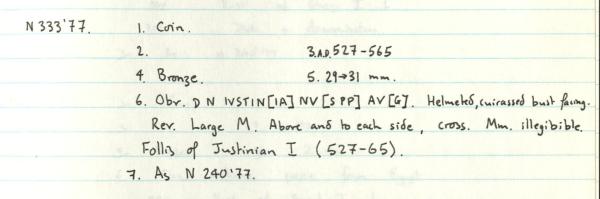 N 333'77. 1. Coin.
2. 3. A.D. 527-565
4. Bronze. 5. 29→31 mm.
6. Obv. D N IVSTIN[IA] NV [S PP] AV[G]. Helmeted, cuirassed bust facing.
Rev. Large M. Above and to each side, cross. Mm. illegibible.
Follis of Justinian I (527-65).
7. As N 240'77.